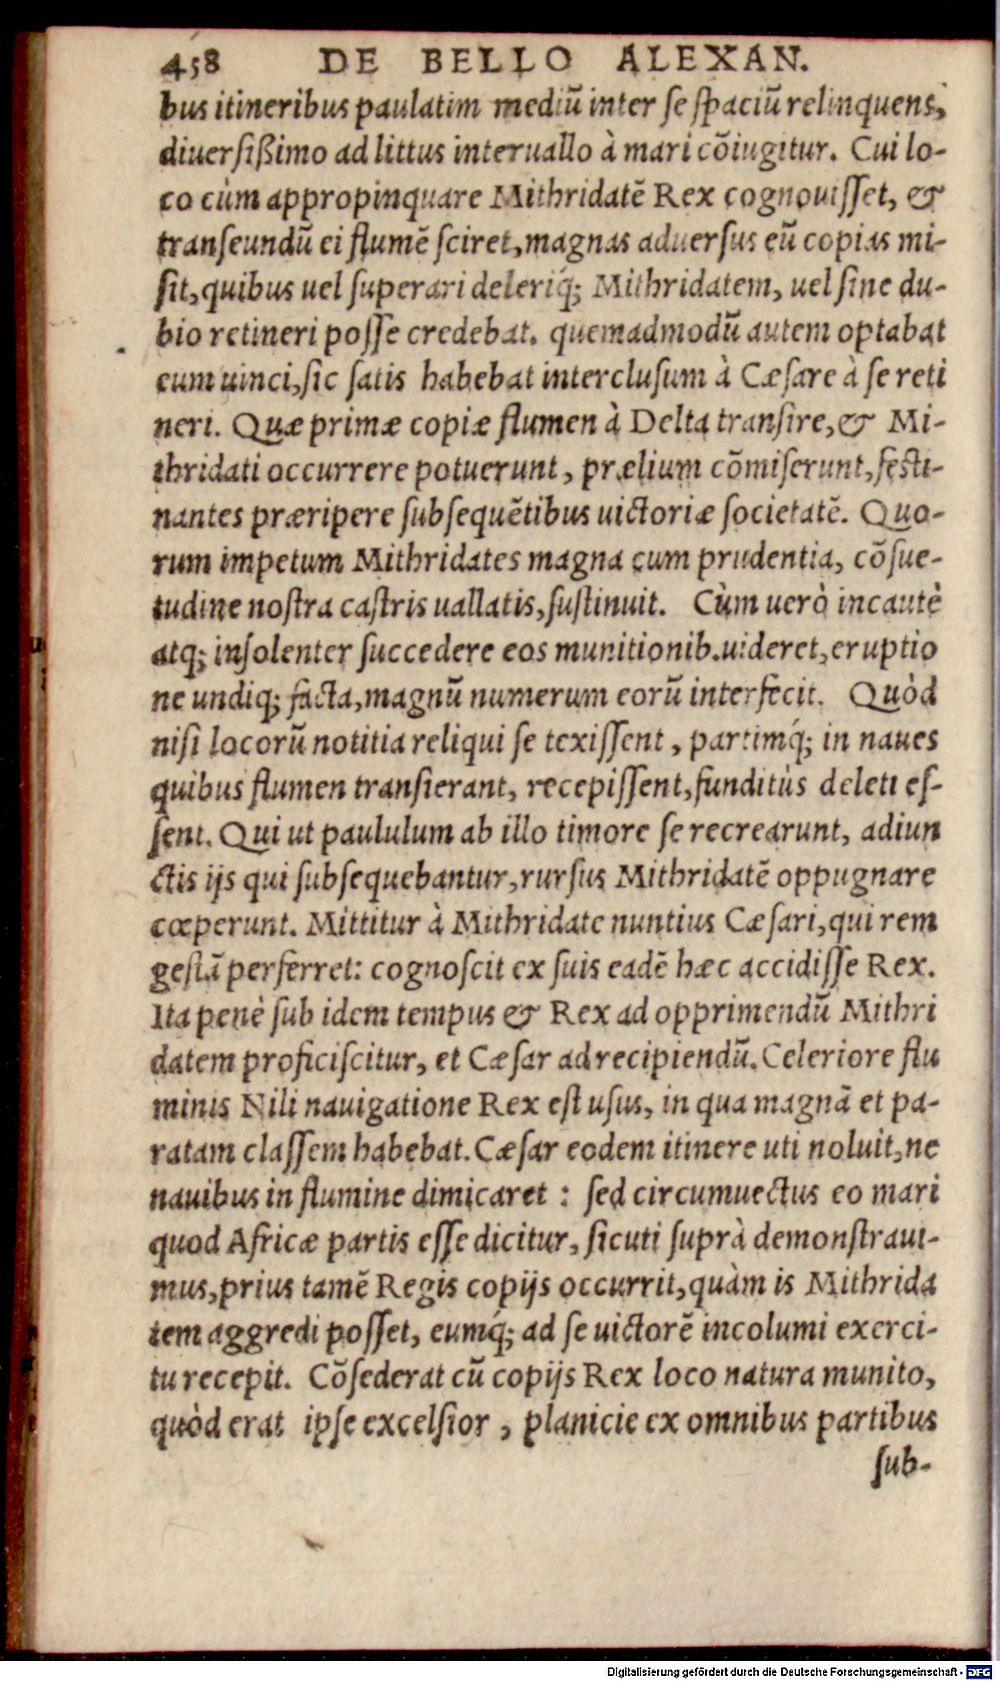 458 DE BELLO ALEXAN.
bus itineribus paulatim mediũ inter se spaciũ relinquens,
diuersißimo ad littus interuallo à mari cõiugitur. Cui lo-
co cùm appropinquare Mithridatẽ Rex cognouisset, &
transeundũ ei flumẽ sciret, magnas aduersus eũ copias mi-
sit, quibus uel superari deleriq́; Mithridatem, uel sine du-
bio retineri posse credebat. quemadmodũ autem optabat
eum uinci, sic satis habebat interclusum à Cæsare à se reti
neri. Quæ primæ copiæ flumen à Delta transire, & Mi-
thridati occurrere potuerunt, prælium cõmiserunt, festi-
nantes præripere subsequẽtibus uictoriæ societatẽ. Quo-
rum impetum Mithridates magna cum prudentia, cõsue-
tudine nostra castris uallatis, sustinuit. Cùm uerò incautè
atq; insolenter succedere eos munitionib. uideret, eruptio
ne undiq; facta, magnũ numerum eorũ interfecit. Quòd
nisi locorũ notitia reliqui se texissent, partimq́; in naues
quibus flumen transierant, recepissent, funditùs deleti es-
sent. Qui ut paululum ab illo timore se recrearunt, adiun
ctis ijs qui subsequebantur, rursus Mithridatẽ oppugnare
cœperunt. Mittitur à Mithridate nuntius Cæsari, qui rem
gestã perferret: cognoscit ex suis eadẽ hæc accidisse Rex.
Ita penè sub idem tempus & Rex ad opprimendũ Mithri
datem proficiscitur, et Cæsar ad recipiendũ. Celeriore flu
minis Nili nauigatione Rex est usus, in qua magnã et pa-
ratam classem habebat. Cæsar eodem itinere uti noluit, ne
nauibus in flumine dimicaret : sed circumuectus eo mari
quod Africæ partis esse dicitur, sicuti suprà demonstraui-
mus, prius tamẽ Regis copijs occurrit, quàm is Mithrida
tem aggredi posset, eumq́; ad se uictorẽ incolumi exerci-
tu recepit. Cõsederat cũ copijs Rex loco natura munito,
quòd erat ipse excelsior, planicie ex omnibus partibus
sub-
Digitalisierung gefördert durch die Deutsche Forschungsgemeinschaft - DFG